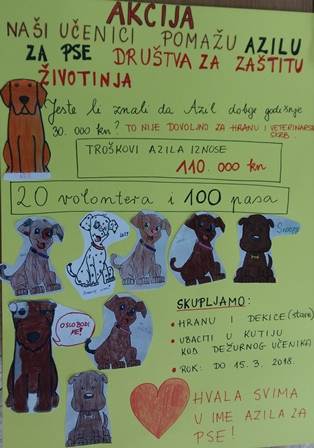 AKCIJA
NAŠI UČENICI POMAŽU AZILU
ZA PSE DRUŠTVA ZA ZAŠTITU
ŽIVOTINJA
Jeste li znali da Azil dobije godišnje
30.000 kn? TO NIJE DOVOLJNO ZA HRANU I VETERINARSKU
SKRB.
TROŠKOVI AZILA IZNOSE
110.000 kn
20 volontera i 100 pasa
OSLOBODI
ME!
SKUPLJAMO:
• HRANU I DEKICE (stare)
• UBACITI U KUTIJU
KOD DEŽURNOG UČENIKA
• ROK: DO 15.3.2018.
HVALA SVIMA
U IME AZILA ZA
PSE!